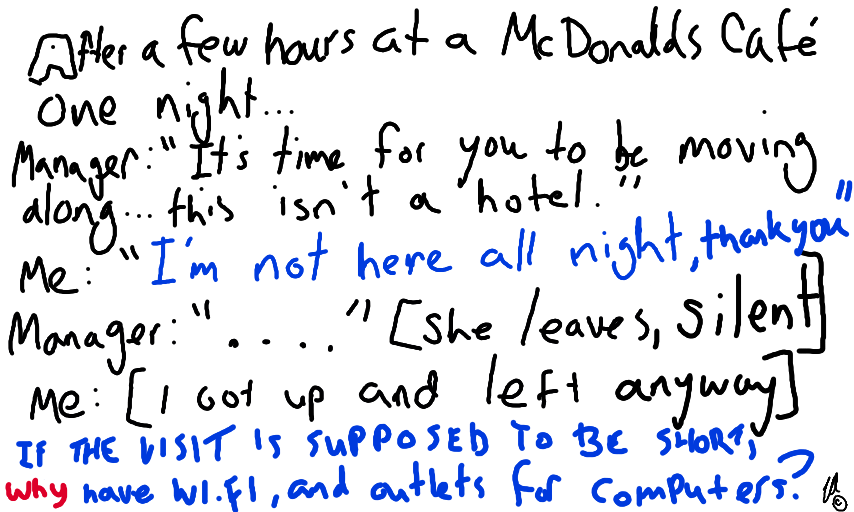 After a few hours at a McDonalds Café
one night...
Manager: "It's time for you to be moving
along... this isn't a hotel."
Me: "I'm not here all night, thank you"
Manager: "...." [She leaves, silent]
Me: [I got up and left anyway]
IF THE VISIT IS SUPPOSED TO BE SHORT,
why have WI.FI, and outlets for computers?
©